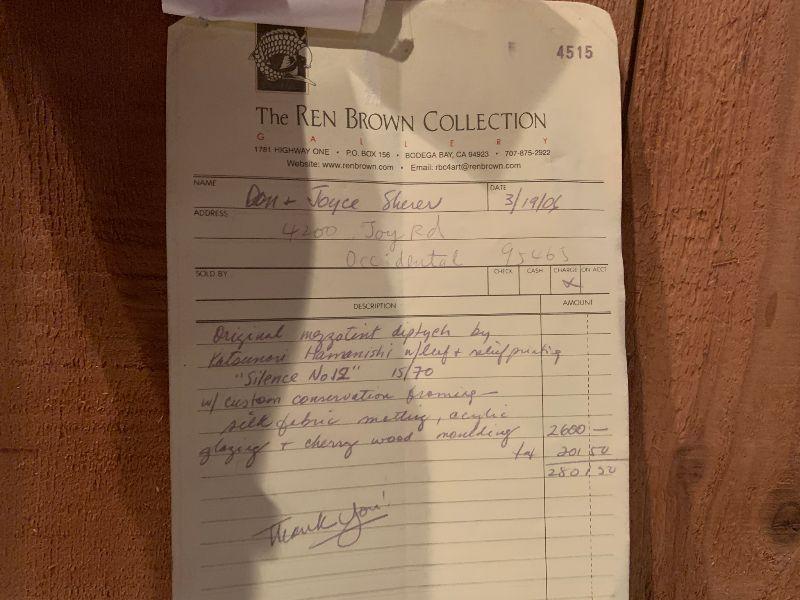 4515
The REN BROWN COLLECTION
GALLERY
1781 HIGHWAY ONE • P.O. BOX 156 • BODEGA BAY, CA 94923 • 707-875-2922
Website: www.renbrown.com • Email: rbc4art@renbrown.com
NAME Don + Joyce Sherer DATE 3/19/06
ADDRESS 4200 Joy Rd
Occidental 95465
SOLD BY CHECK CASH CHARGE X ON ACCT
DESCRIPTION AMOUNT
Original mezzotint diptych by
Katsunori Hamanishi w/leaf + relief printing
"Silence No 12" 15/70
w/ custom conservation framing —
silk fabric matting, acrylic
glazing + cherry wood moulding 2600 —
tax 201 50
2801 50
Thank You!